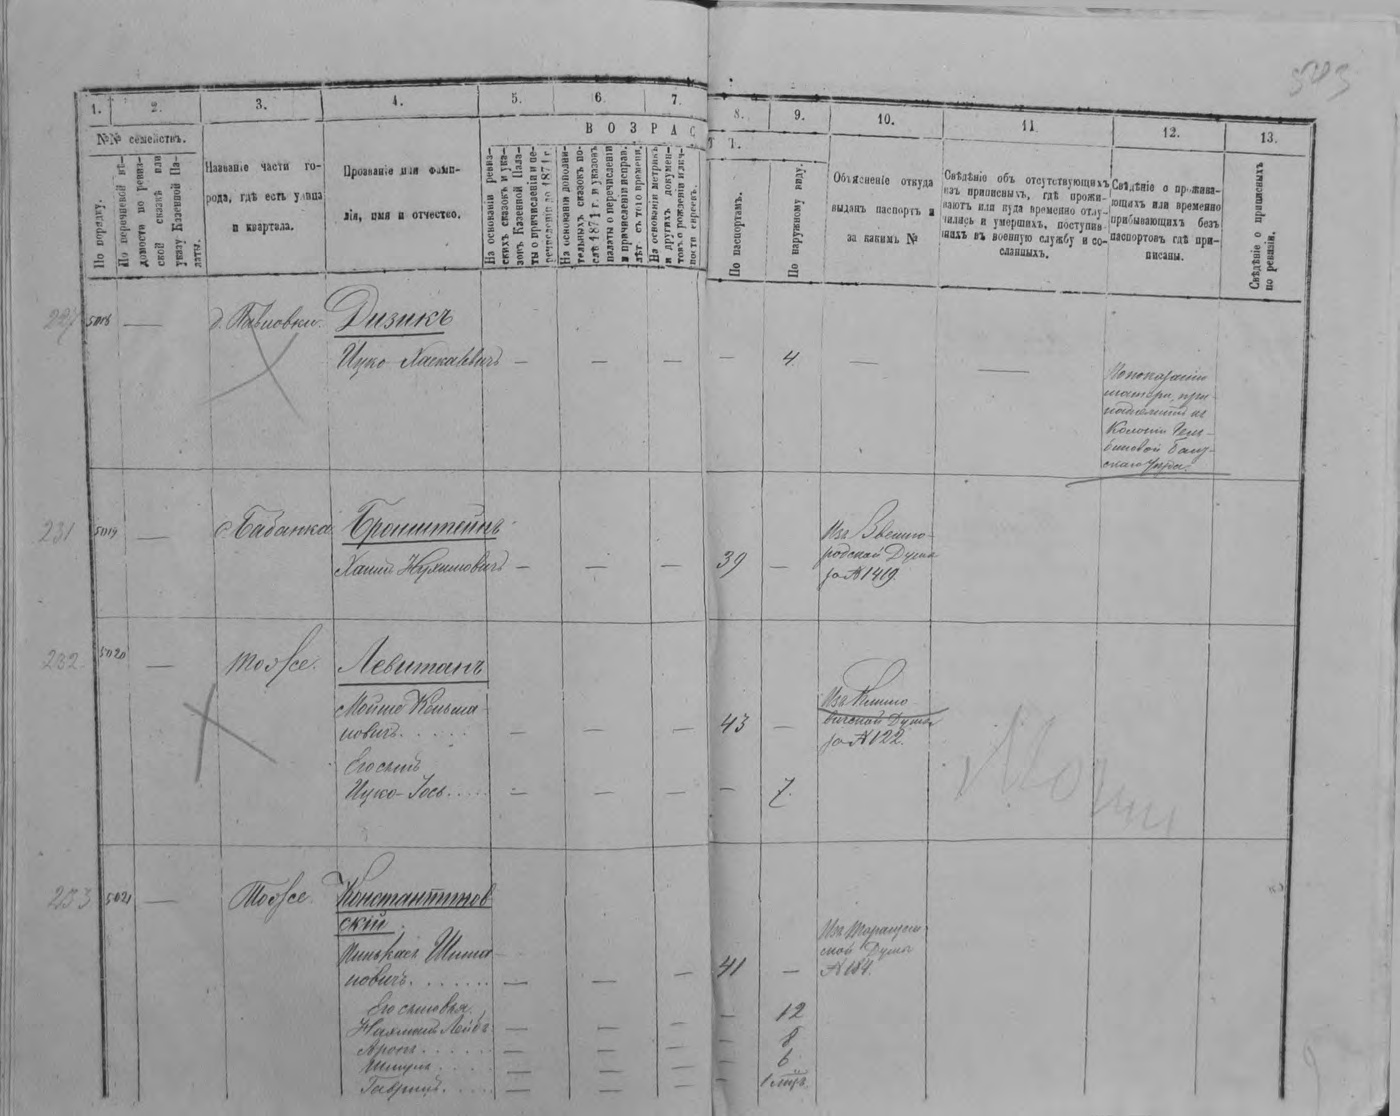 1. 2. 3. 4. 5. 6. 7. 8. 9. 10. 11. 12. 13.
№№ семействъ.
По порядку.
По перечневой вѣ-
домости по ревиз-
ской сказкѣ или
указу Казенной Па-
латы.
Названіе части го-
рода, гдѣ есть улица
и квартала.
Прозваніе или фами-
лія, имя и отчество.
ВОЗРАСТЪ.
На основаніи ревиз-
скихъ сказокъ и ука-
зовъ Казенной Пала-
ты о причисленіи и пе-
речисленіи до 1871 г.
На основаніи дополни-
тельныхъ сказокъ по-
слѣ 1871 г. и указовъ
палаты о перечисленіи
и причисленіи исправ.
лѣт съ того времени.
На основаніи метрикъ
и другихъ докумен-
товъ о рожденіи и лич-
ности евреевъ.
По паспортамъ.
По наружному виду.
Объясненіе откуда
выданъ паспортъ и
за какимъ №
Свѣдѣніе объ отсутствующихъ
изъ приписныхъ, гдѣ прожи-
ваютъ или куда временно отлу-
чились и умершихъ, поступив-
шихъ въ военную службу и со-
сланныхъ.
Свѣдѣніе о прожива-
ющихъ или временно
прибывающихъ безъ
паспортовъ гдѣ при-
писаны.
Свѣдѣніе о приписныхъ
по ревизіи.
227 5018 — д. Павловки. Дизикъ
Ицко Хаскелевичъ — — — — 4. — —
По показанію
матери, при-
надлежитъ къ
Колоніи
231 5019 — с Бабанка Бронштейнъ
Хаимъ Нухимовичъ — — — 39 —
Изъ Звениго-
родской Думы
за № 1419.
232 5020 — Тоже. Левитанъ
Мойше Кельма-
новичъ. — — — 43 —
Изъ
Думы
за № 122.
Его сынъ
Ицко-Іось. — — — — 7.
233 5021 — Тоже. Константинов-
скій.
Пинькасъ Шима-
новичъ. — — — 41 —
Изъ Таращан-
ской Думы
№ 184.
Его сыновья.
Нахманъ Лейбъ — — — — 12
Аронъ. — — — — 8
— — — — 6
Гаврилъ. — — — —